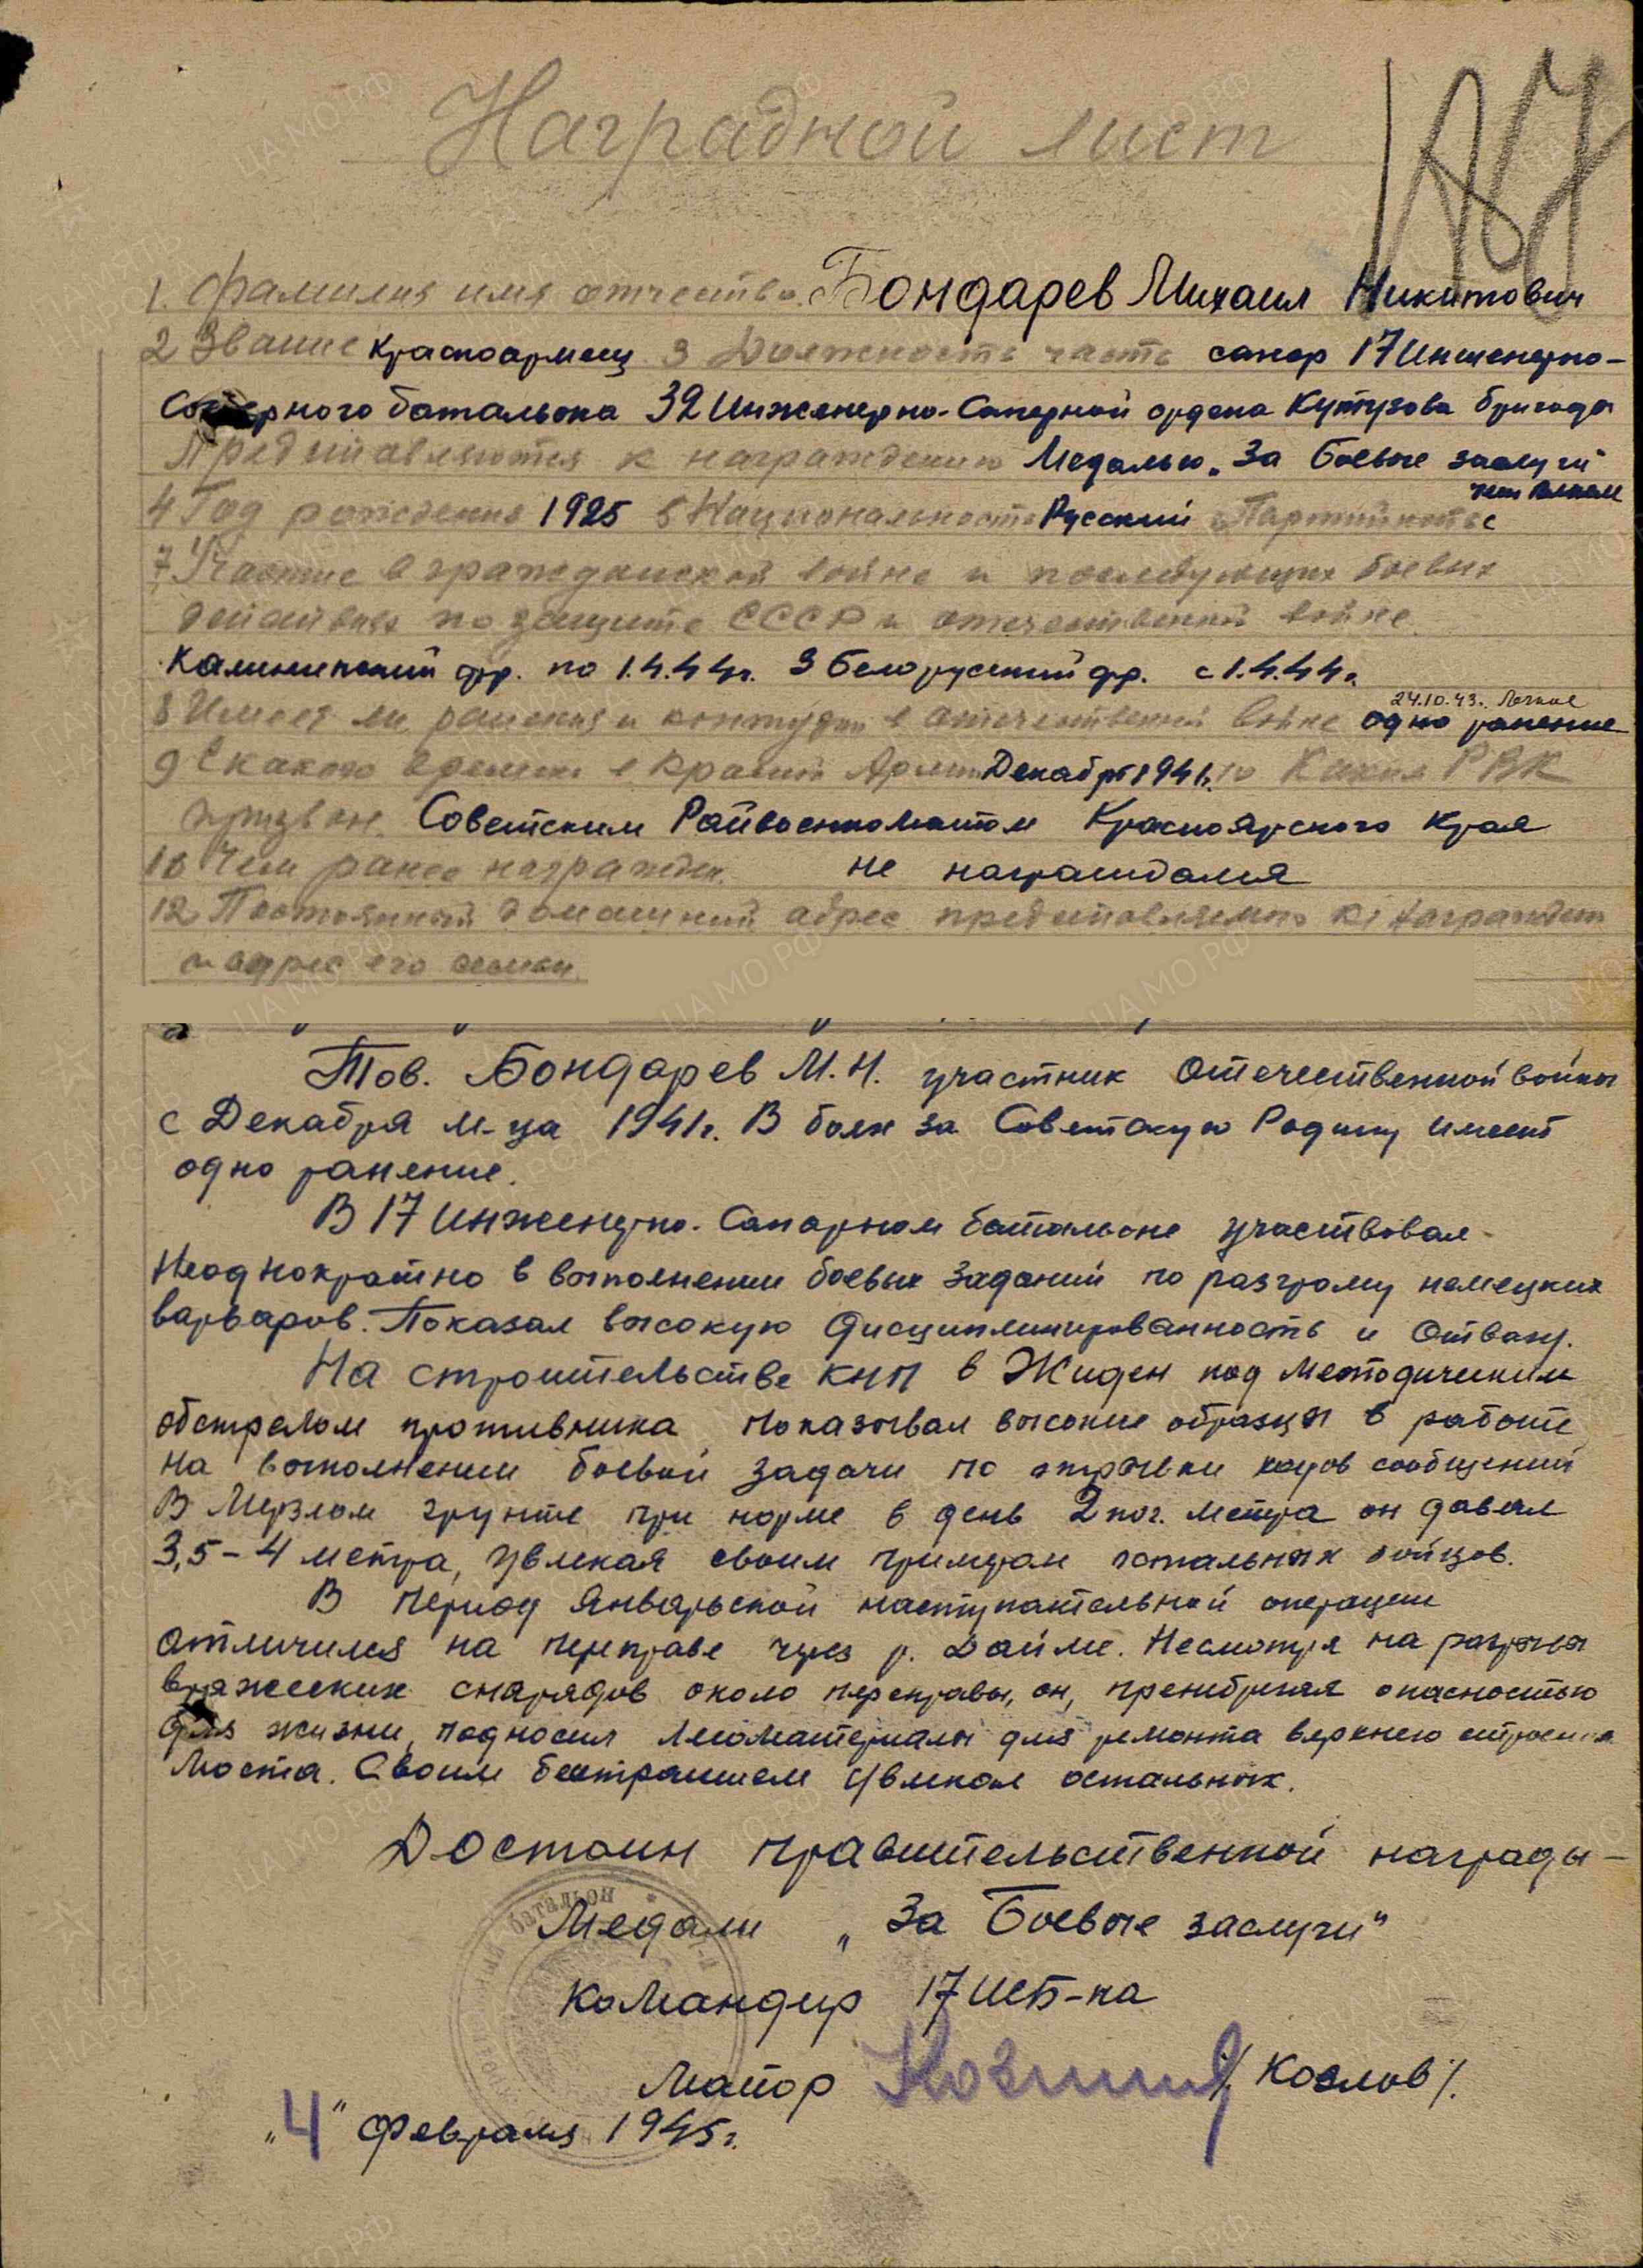 Наградной лист
1. Фамилия имя отчество. Бондарев Михаил Никитович
2 Звание Красноармеец 3 Должность часть сапер 17 Инженерно-
Саперного батальона 32 Инженерно-Саперной ордена Кутузова бригады
Представляется к награждению Медалью „За Боевые заслуги
4 Год рождения 1925 5 Национальность Русский 6 Партийность с
7 Участие в гражданской войне и последующих боевых
действиях по защите СССР и отечественной войне.
Калининский фр. по 1.4.44г. 3 Белорусский фр. с 1.4.44г.
24.10.43. Легкое
8 Имеет ли ранения и контузии в отечественной войне одно ранение
9 С какого времени в Красной Армии Декабрь 1941г. 10 Каким РВК
призван. Советским Райвоенкоматом Красноярского Края
10 Чем ранее награжден. не награждался
12 Постоянный домашний адрес представляемого к награжден
и адрес его семьи
Тов. Бондарев М.Н. участник Отечественной войны
с Декабря м-ца 1941г. В боях за Советскую Родину имеет
одно ранение.
В 17 Инженерно-Саперном батальоне участвовал
Неоднократно в выполнении боевых заданий по разгрому немецких
варваров. Показал высокую дисциплинированность и отвагу.
На строительстве КНП в Жиден под методическим
обстрелом противника показывал высокие образцы в работе
На выполнении боевой задачи по отрывки ходов сообщений
В Мерзлом грунте при норме в день 2 пог. метра он давал
3,5-4 метра, увлекая своим примером остальных бойцов.
В период Январьской наступательной операции
отличился на переправе через р. Дайме. Несмотря на разрывы
вражеских снарядов около переправы, он, пренебрегая опасностью
для жизни, подносил лесоматериалы для ремонта верхнего строения
Моста. Своим бесстрашием увлекал остальных.
Достоин правительственной награды-
Медали „За Боевые заслуги"
Командир 17 ИСБ-на
Майор /Козлов/.
„4" февраля 1945г.